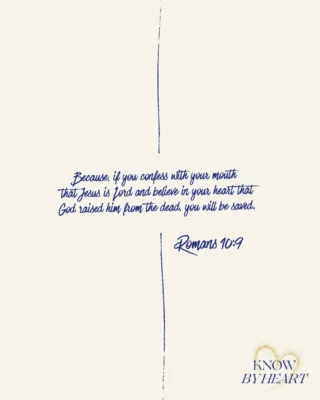 Because, if you confess with your mouth
that Jesus is Lord and believe in your heart that
God raised him from the dead, you will be saved.
Romans 10:9
KNOW
BY HEART